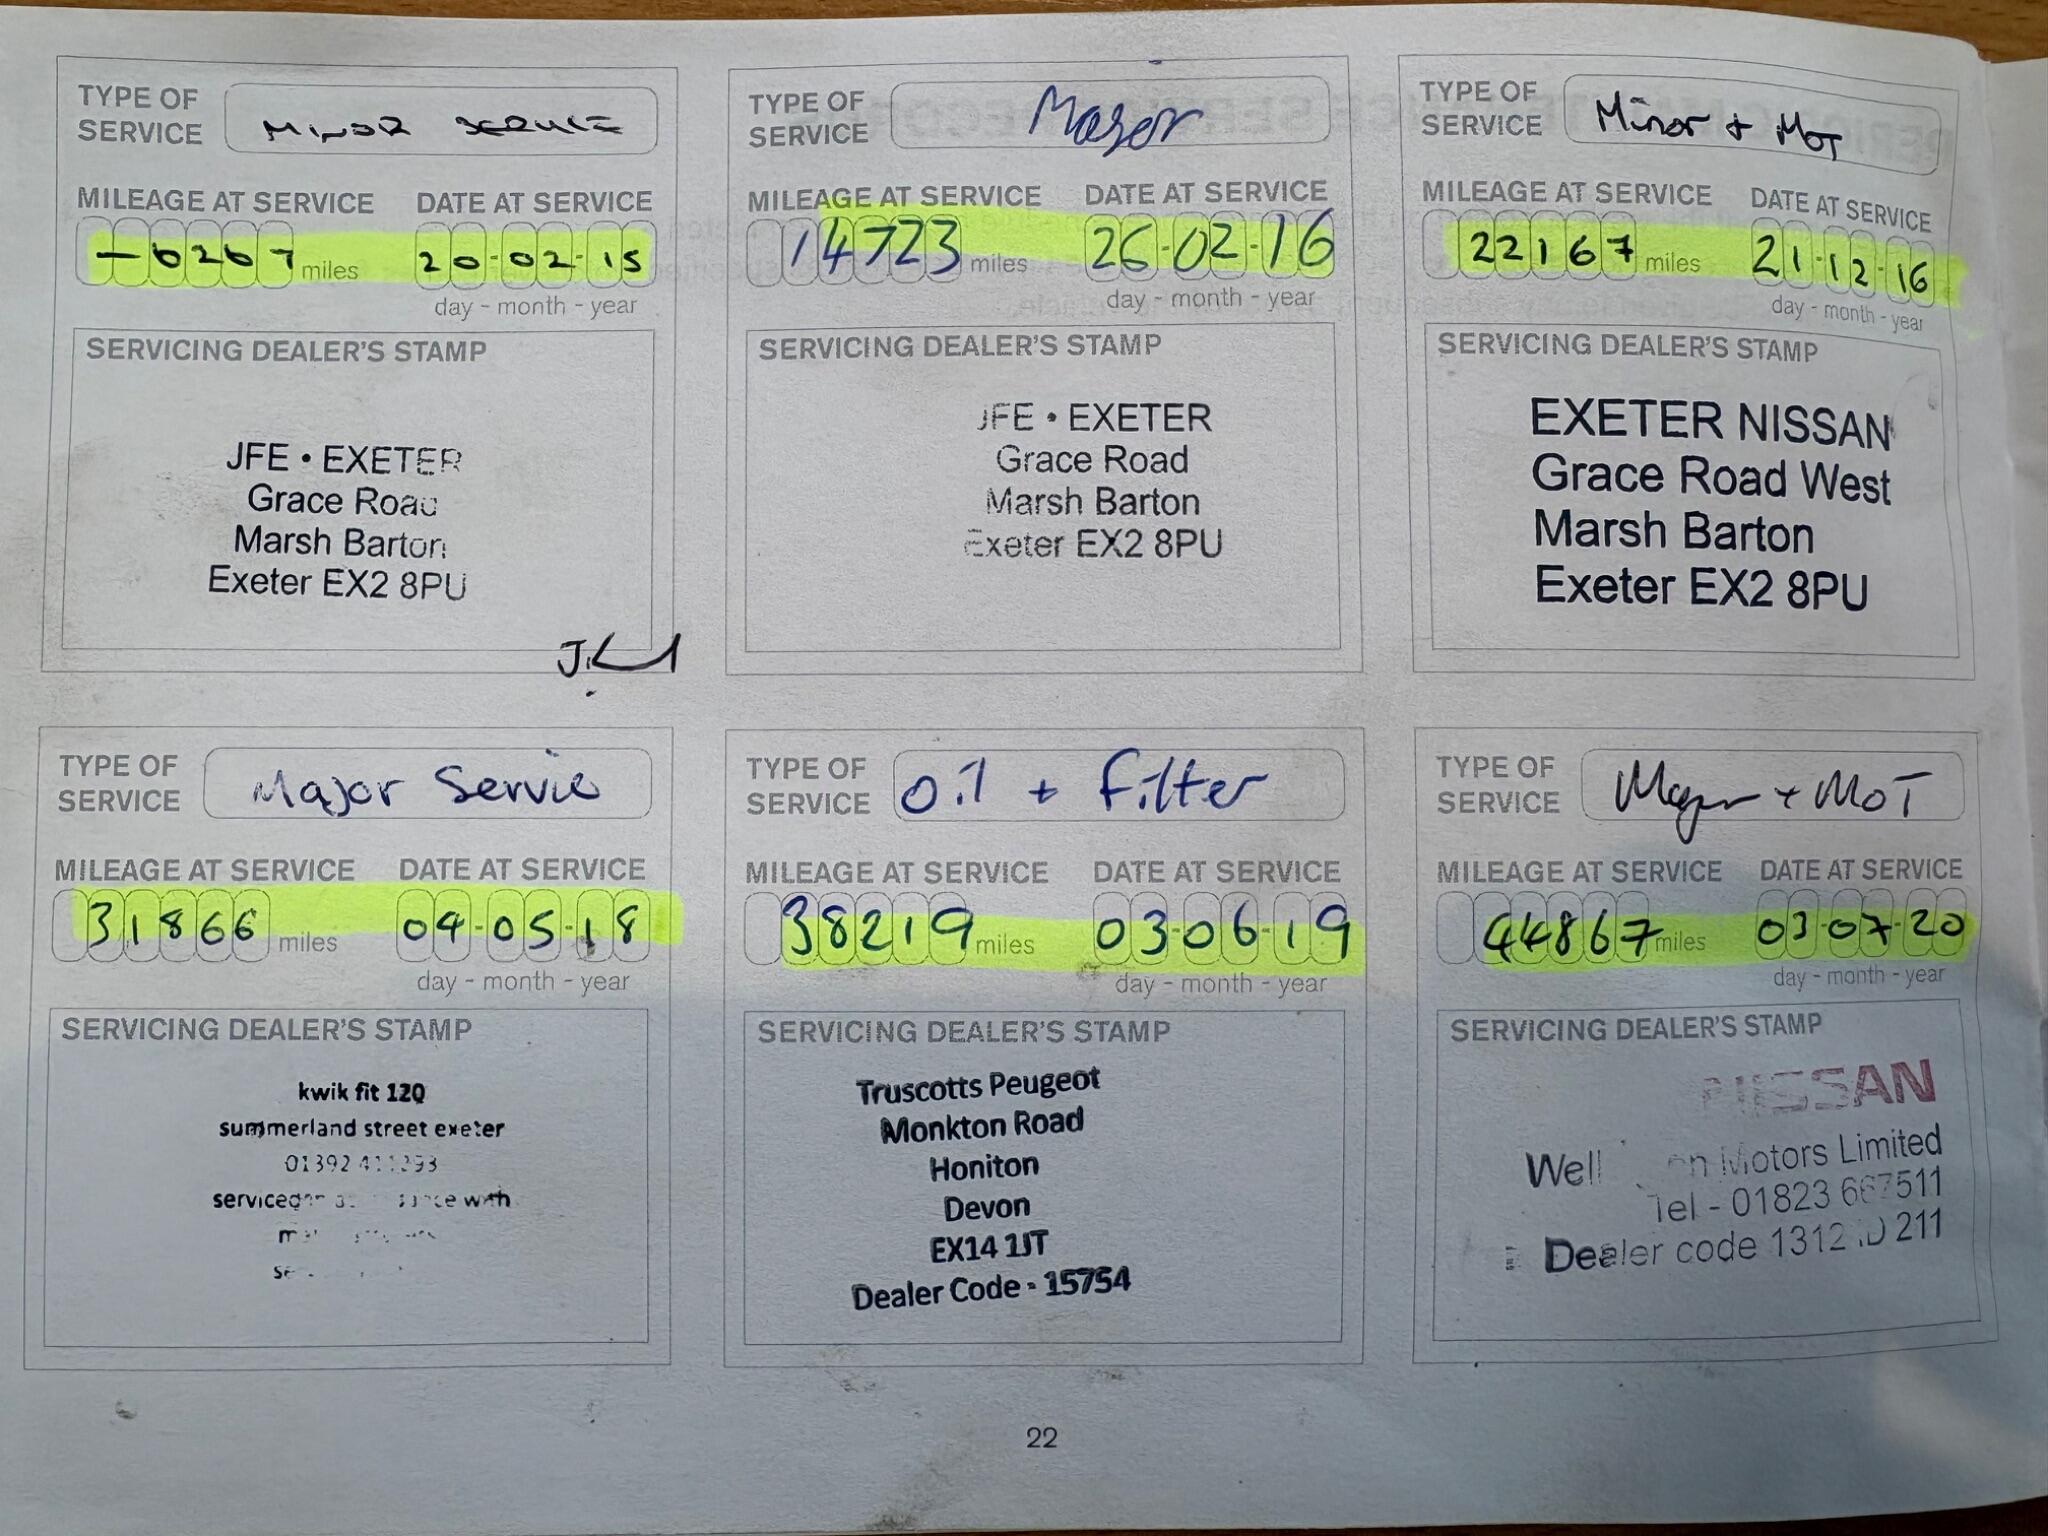 TYPE OF SERVICE MINOR SERVICE
MILEAGE AT SERVICE DATE AT SERVICE
- 6267 miles 20-02-15
day - month - year
SERVICING DEALER'S STAMP
JFE • EXETER
Grace Road
Marsh Barton
Exeter EX2 8PU
TYPE OF SERVICE Major
MILEAGE AT SERVICE DATE AT SERVICE
14723 miles 26-02-16
day - month - year
SERVICING DEALER'S STAMP
JFE • EXETER
Grace Road
Marsh Barton
Exeter EX2 8PU
TYPE OF SERVICE Minor + MOT
MILEAGE AT SERVICE DATE AT SERVICE
22167 miles 21-12-16
day - month - year
SERVICING DEALER'S STAMP
EXETER NISSAN
Grace Road West
Marsh Barton
Exeter EX2 8PU
TYPE OF SERVICE Major Servic
MILEAGE AT SERVICE DATE AT SERVICE
31866 miles 04-05-18
day - month - year
SERVICING DEALER'S STAMP
kwik fit 120
summerland street exeter
01392
with
TYPE OF SERVICE Oil + Filter
MILEAGE AT SERVICE DATE AT SERVICE
38219 miles 03-06-19
day - month - year
SERVICING DEALER'S STAMP
Truscotts Peugeot
Monkton Road
Honiton
Devon
EX14 1JT
Dealer Code - 15754
TYPE OF SERVICE Major + MOT
MILEAGE AT SERVICE DATE AT SERVICE
44867 miles 03-07-20
day - month - year
SERVICING DEALER'S STAMP
NISSAN
Motors Limited
Tel - 01823 667511
Dealer code 1312 211
22